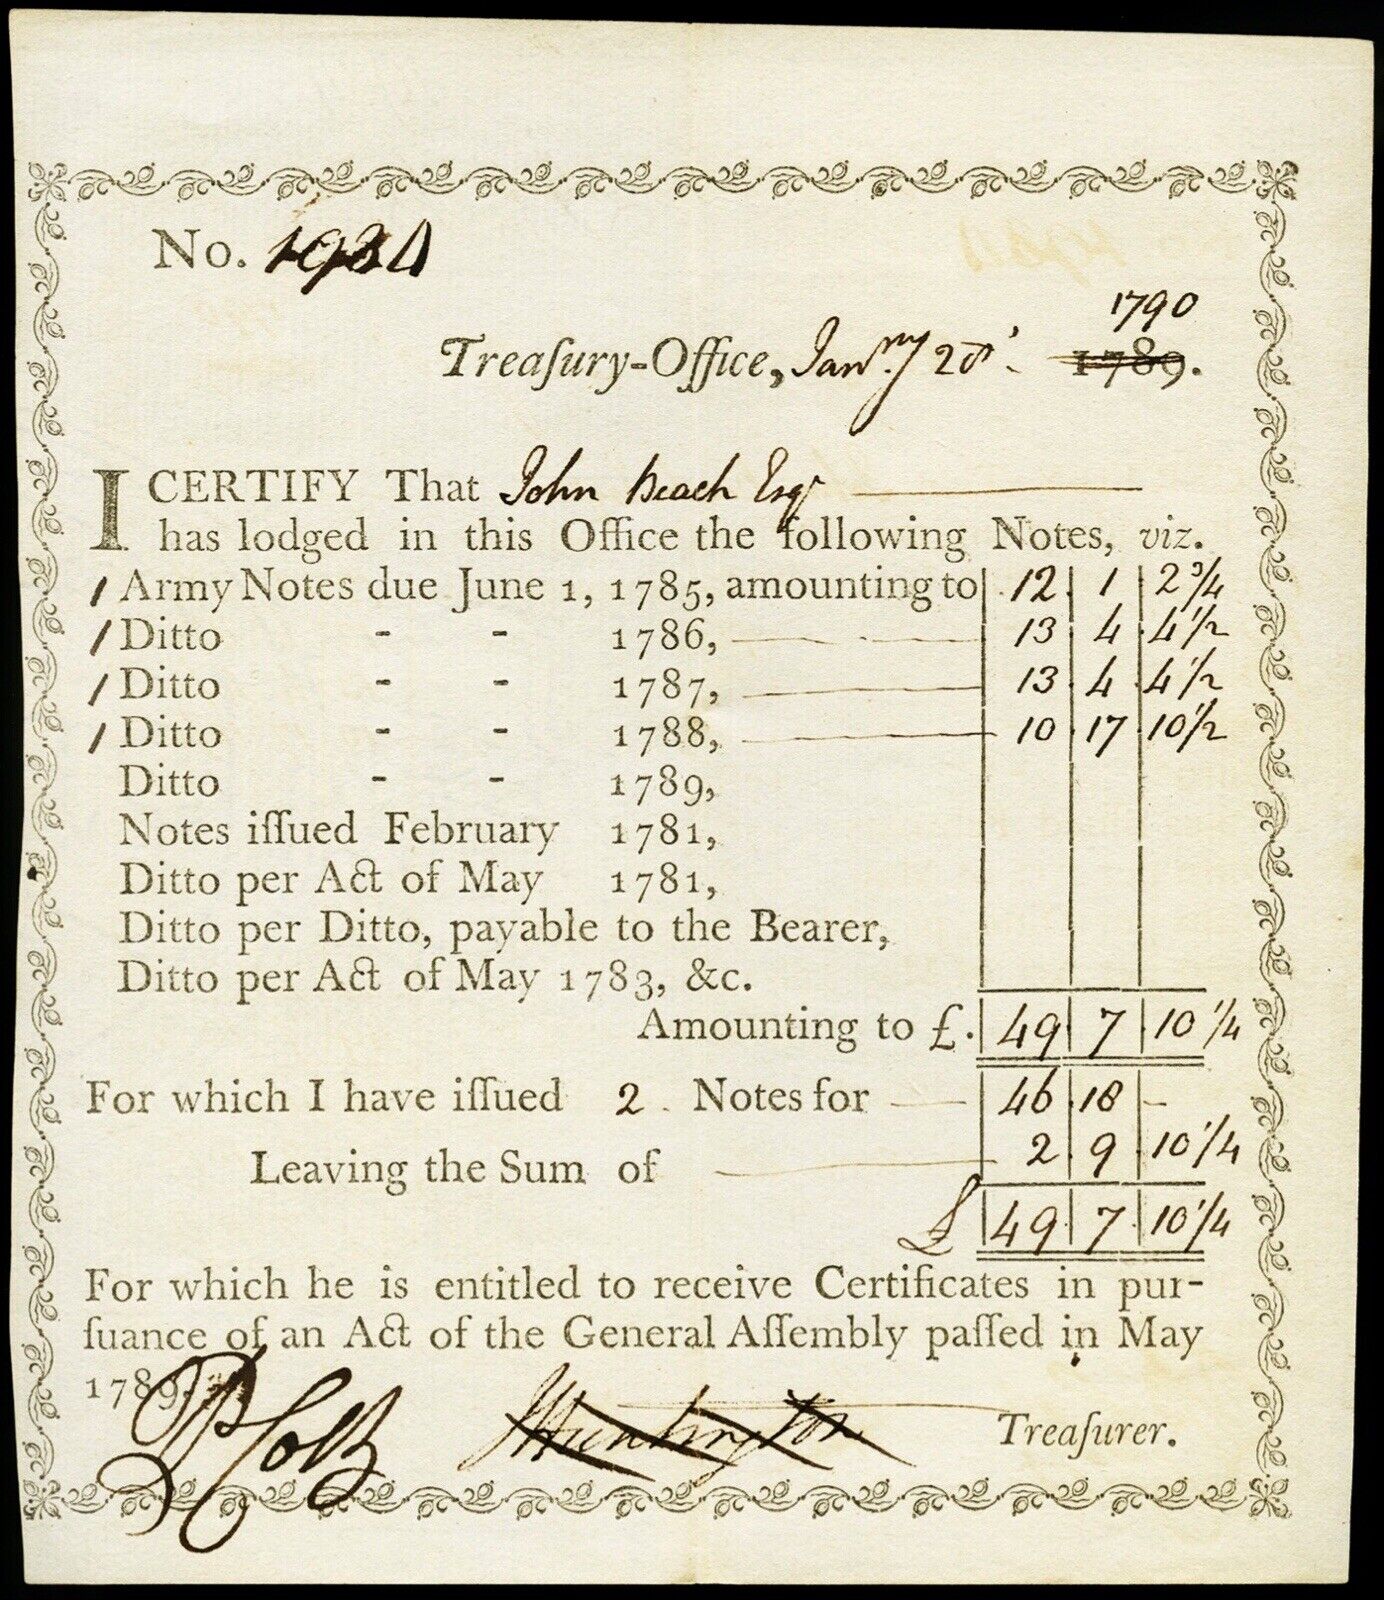 No.
1790
Treaſury-Office, Janry 28. 1789.
I CERTIFY That John Beach Esqr
has lodged in this Office the following Notes, viz.
1 Army Notes due June 1, 1785, amounting to 12 1 2 3/4
1 Ditto - - 1786, 13 4 4 1/2
1 Ditto - - 1787, 13 4 4 1/2
1 Ditto - - 1788, 10 17 10 1/2
Ditto - - 1789,
Notes iſſued February 1781,
Ditto per Act of May 1781,
Ditto per Ditto, payable to the Bearer,
Ditto per Act of May 1783, &c.
Amounting to £. 49 7 10 1/4
For which I have iſſued 2 Notes for 46 18 -
Leaving the Sum of 2 9 10 1/4
£ 49 7 10 1/4
For which he is entitled to receive Certificates in pur-
ſuance of an Act of the General Aſſembly paſſed in May
1789.
P Colt J Huntington Treaſurer.